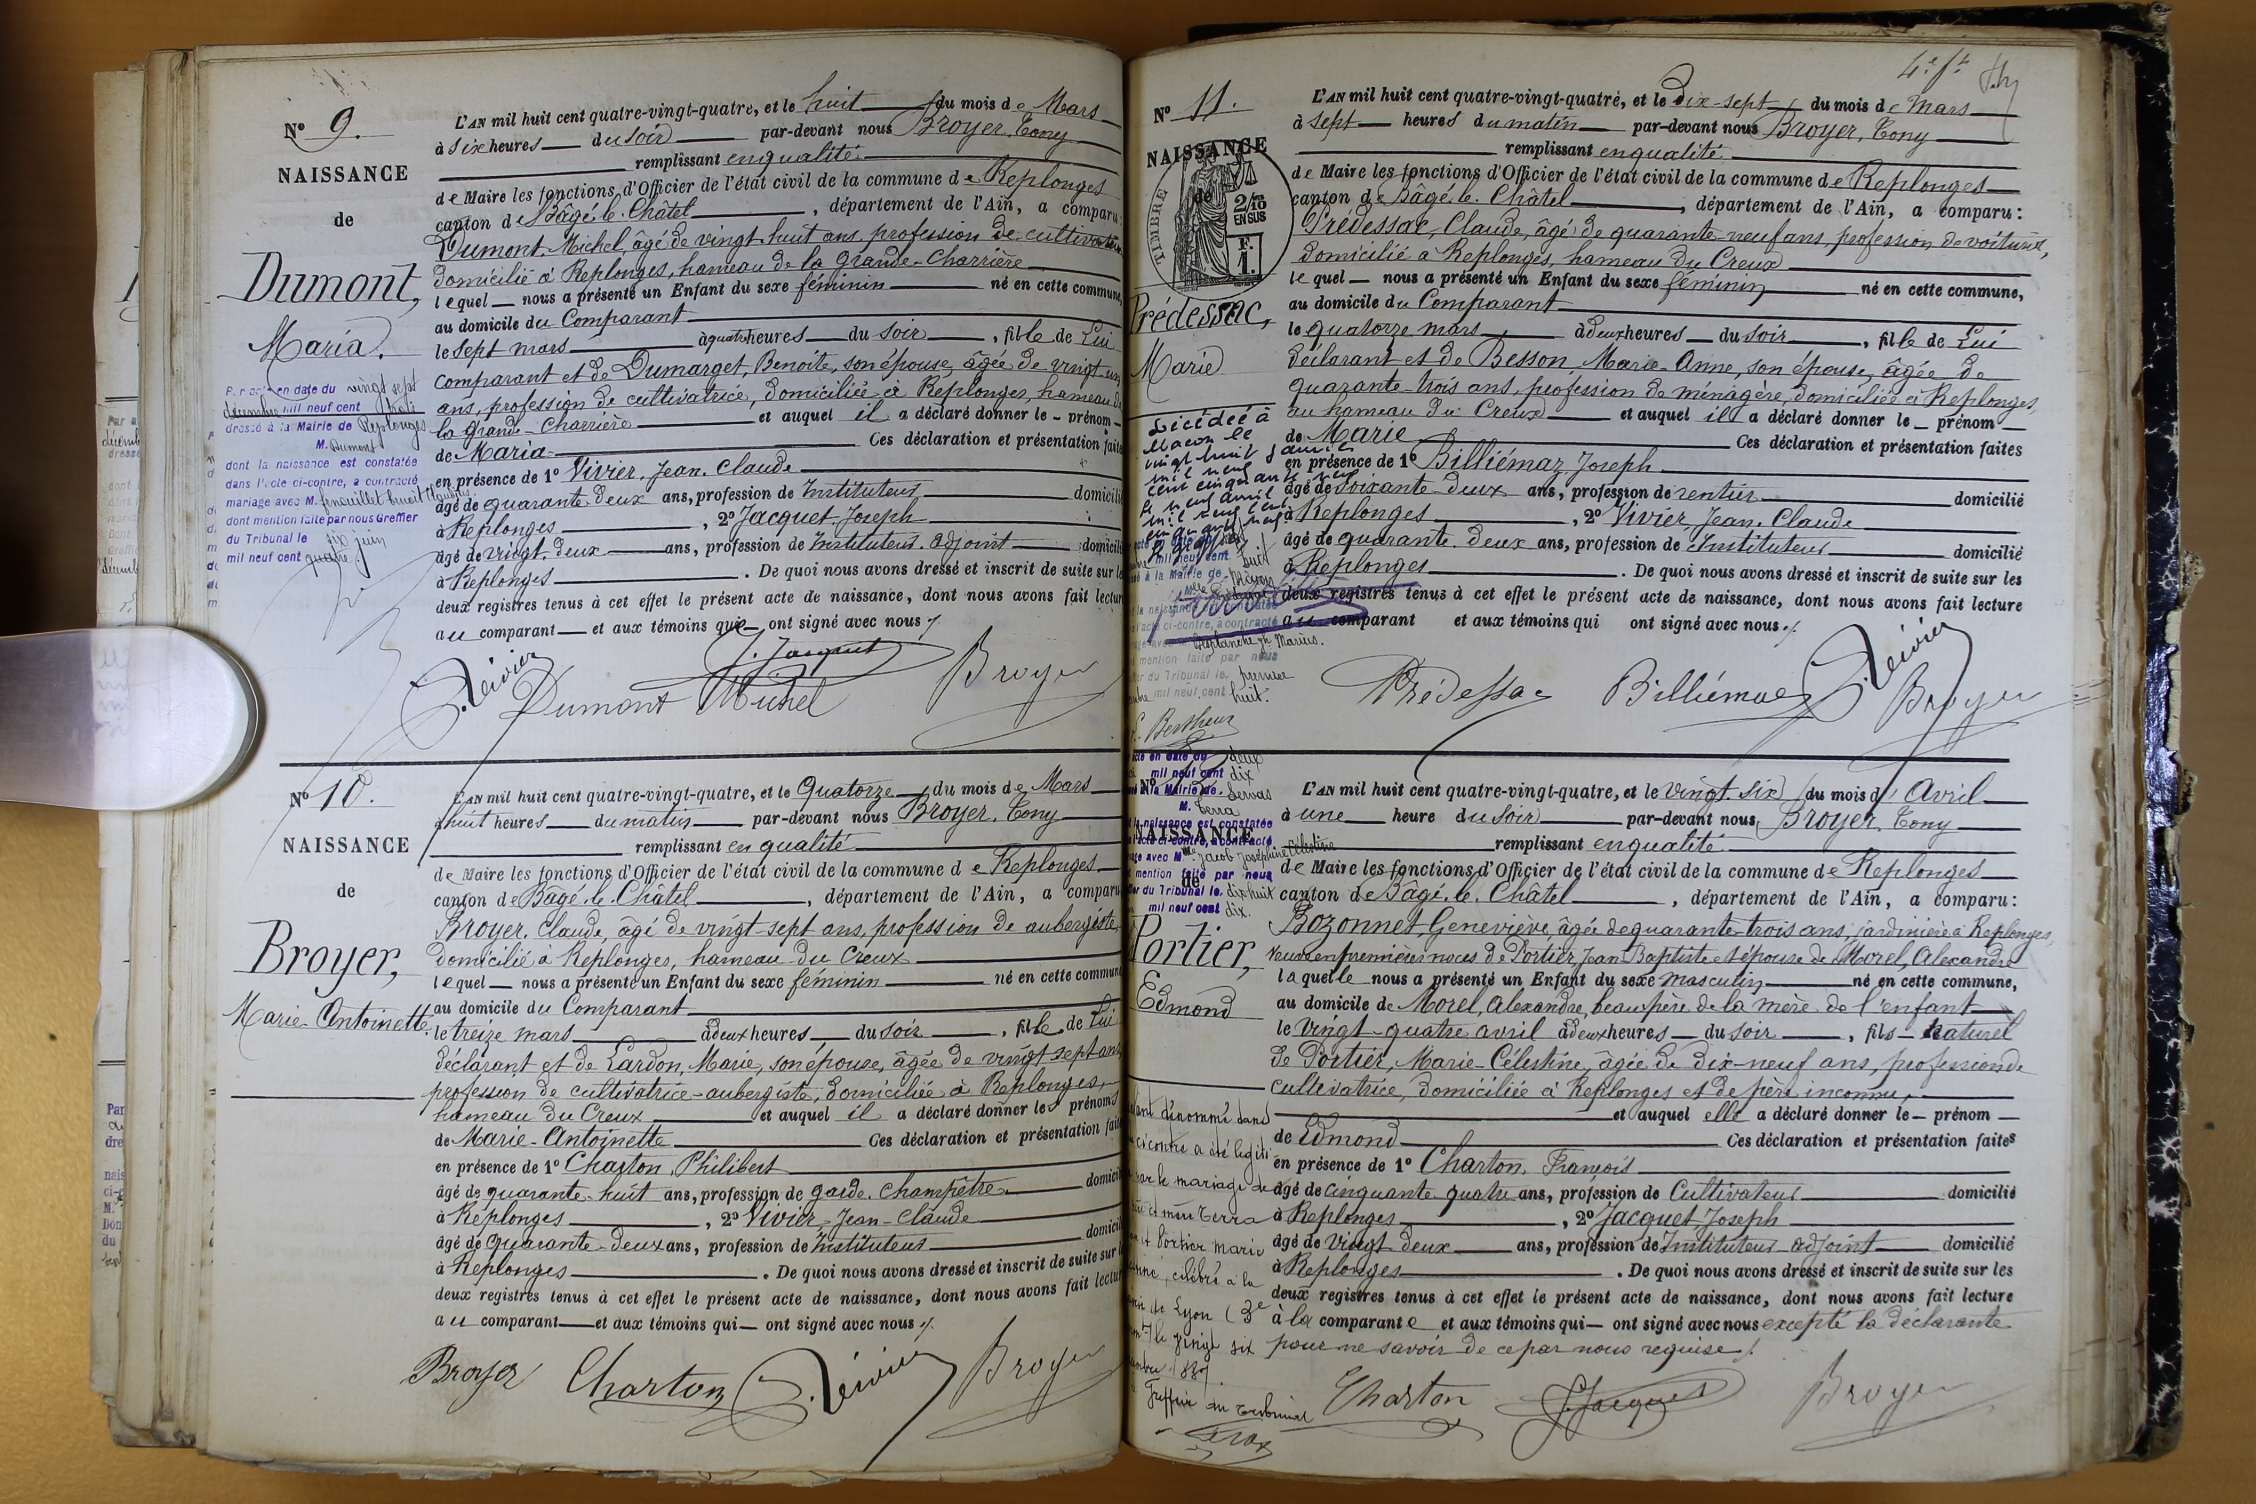 Nº 9.
NAISSANCE
de
Dumont,
Maria.
Par acte en date du vingt sept
décembre mil neuf cent trois
dressé à la Mairie de Replonges
M. Dumont
dont la naissance est constatée
dans l'acte ci-contre, a contracté
mariage avec M. fenouillet benoit
dont mention faite par nous Greffier
du Tribunal le six juin
mil neuf cent quatre.
L'AN mil huit cent quatre-vingt-quatre, et le huit du mois de Mars
à six heures du soir par-devant nous Broyer, Tony
remplissant en qualité
de Maire les fonctions d'Officier de l'état civil de la commune de Replonges
canton de Bâgé-le-Châtel, département de l'Ain, a comparu:
Dumont, Michel, âgé de vingt-huit ans, profession de cultivateur
domicilié à Replonges, hameau de la Grande-Charrière
lequel nous a présenté un Enfant du sexe féminin né en cette commune,
au domicile du Comparant
le sept mars à quatre heures du soir, fille de Lui
comparant et de Dumarget, Benoîte, son épouse, âgée de vingt-un
ans, profession de cultivatrice, domiciliée à Replonges, hameau de
la Grande-Charrière et auquel il a déclaré donner le prénom
de Maria Ces déclaration et présentation faites
en présence de 1º Vivier, Jean-Claude
âgé de quarante-deux ans, profession de Instituteur domicilié
à Replonges, 2º Jacquet, Joseph
âgé de vingt-deux ans, profession de Instituteur-adjoint domicilié
à Replonges. De quoi nous avons dressé et inscrit de suite sur les
deux registres tenus à cet effet le présent acte de naissance, dont nous avons fait lecture
au comparant et aux témoins qui ont signé avec nous ./.
J. Vivier
J. Jacquet
Broyer
Dumont Michel
Nº 10.
NAISSANCE
de
Broyer,
Marie-Antoinette.
L'AN mil huit cent quatre-vingt-quatre, et le Quatorze du mois de Mars
à huit heures du matin par-devant nous Broyer, Tony
remplissant en qualité
de Maire les fonctions d'Officier de l'état civil de la commune de Replonges
canton de Bâgé-le-Châtel, département de l'Ain, a comparu
Broyer, Claude, âgé de vingt-sept ans, profession de aubergiste,
domicilié à Replonges, hameau du Creux
lequel nous a présenté un Enfant du sexe féminin né en cette commune
au domicile du Comparant
le treize mars à deux heures du soir, fille de Lui
déclarant et de Lardon, Marie, son épouse, âgée de vingt-sept ans,
profession de cultivatrice-aubergiste, domiciliée à Replonges,
hameau du Creux et auquel il a déclaré donner les prénoms
de Marie-Antoinette Ces déclaration et présentation faites
en présence de 1º Charton, Philibert
âgé de quarante-huit ans, profession de garde-champêtre domicilié
à Replonges, 2º Vivier, Jean-Claude
âgé de quarante-deux ans, profession de Instituteur domicilié
à Replonges. De quoi nous avons dressé et inscrit de suite sur
deux registres tenus à cet effet le présent acte de naissance, dont nous avons fait lecture
au comparant et aux témoins qui ont signé avec nous ./.
Broyer Charton J. Vivier Broyer
4e ft
Nº 11.
NAISSANCE
de
TIMBRE
2/10
EN SUS
F.
1.
Prédessac,
Marie
Décédée à
Macon le
vingt huit janvier
mil neuf
cent cinquante neuf
le neuf avril
mil neuf cent
cinquante neuf
mil neuf cent huit
à la Mairie de Mâcon
la naissance
l'acte ci-contre, a contracté
mention faite par nous
du Tribunal le premier
mil neuf cent huit.
L'AN mil huit cent quatre-vingt-quatre, et le Dix-sept du mois de Mars
à sept heures du matin par-devant nous Broyer, Tony
remplissant en qualité
de Maire les fonctions d'Officier de l'état civil de la commune de Replonges
canton de Bâgé-le-Châtel, département de l'Ain, a comparu:
Prédessac, Claude, âgé de quarante-neuf ans, profession de voiturier,
domicilié à Replonges, hameau du Creux
lequel nous a présenté un Enfant du sexe féminin né en cette commune,
au domicile du Comparant
le quatorze mars à deux heures du soir, fille de Lui
déclarant et de Besson, Marie-Anne, son épouse, âgée de
quarante-trois ans, profession de ménagère, domiciliée à Replonges,
au hameau du Creux et auquel il a déclaré donner le prénom
de Marie Ces déclaration et présentation faites
en présence de 1º Billiémaz, Joseph
âgé de soixante-deux ans, profession de rentier domicilié
à Replonges, 2º Vivier, Jean-Claude
âgé de quarante-deux ans, profession de Instituteur domicilié
à Replonges. De quoi nous avons dressé et inscrit de suite sur les
deux registres tenus à cet effet le présent acte de naissance, dont nous avons fait lecture
au comparant et aux témoins qui ont signé avec nous ./.
Prédessac Billiémaz J. Vivier
Broyer
Nº 12
NAISSANCE
de
Portier,
Edmond
acte en date du deux
mil neuf cent dix
à la Mairie de Servas
M. Terra
la naissance est constatée
l'acte ci-contre, a contracté
avec Mlle Jacob Joséphine Célestine
mention faite par nous
du Tribunal le dix huit
mil neuf cent dix.
L'AN mil huit cent quatre-vingt-quatre, et le Vingt-six du mois d'Avril
à une heure du soir par-devant nous Broyer, Tony
remplissant en qualité
de Maire les fonctions d'Officier de l'état civil de la commune de Replonges
canton de Bâgé-le-Châtel, département de l'Ain, a comparu:
Bozonnet, Geneviève, âgée de quarante-trois ans, jardinière à Replonges,
veuve en premières noces de Portier, Jean-Baptiste et épouse de Morel, Alexandre
laquelle nous a présenté un Enfant du sexe masculin né en cette commune,
au domicile de Morel, Alexandre, beau-père de la mère de l'enfant
le vingt-quatre avril à deux heures du soir, fils naturel
de Portier, Marie-Célestine, âgée de dix-neuf ans, profession de
cultivatrice, domiciliée à Replonges et de père inconnu,
et auquel elle a déclaré donner le prénom
de Edmond Ces déclaration et présentation faites
en présence de 1º Charton, François
âgé de cinquante-quatre ans, profession de Cultivateur domicilié
à Replonges, 2º Jacquet, Joseph
âgé de vingt-deux ans, profession de Instituteur-adjoint domicilié
à Replonges. De quoi nous avons dressé et inscrit de suite sur les
deux registres tenus à cet effet le présent acte de naissance, dont nous avons fait lecture
à la comparante et aux témoins qui ont signé avec nous excepté la déclarante
pour ne savoir de ce par nous requise ./.
dénommé dans
ci contre a été légiti
par le mariage de
Terra
et Portier Marie
célébré à la
de Lyon (3e
le vingt six
1887.
Greffier du Tribunal
Charton J. Jacquet Broyer